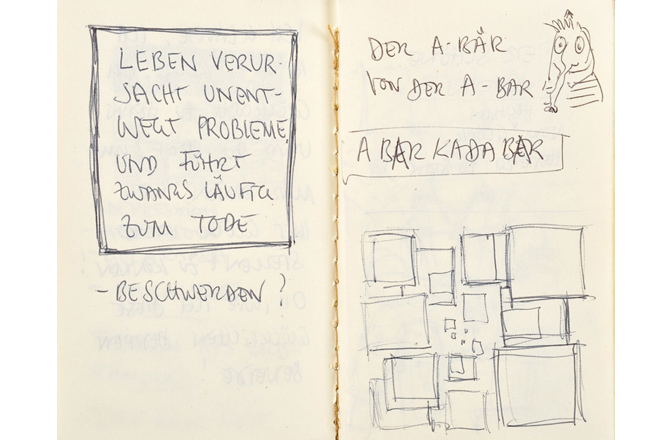 LEBEN VERUR-
SACHT UNENT-
WEGT PROBLEME
UND FÜHRT
ZWANGSLÄUFIG
ZUM TODE
- BESCHWERDEN?
DER A-BÄR
VON DER A-BAR
ABÄRKADABÄR